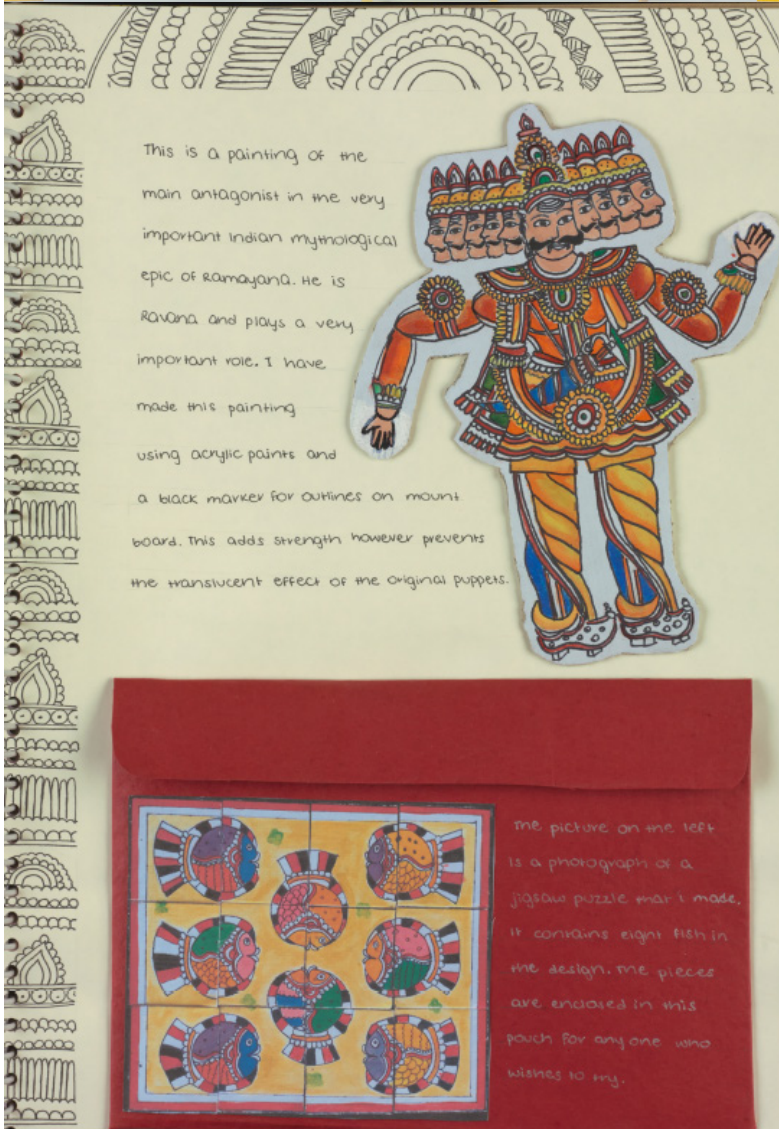 This is a painting of the
main antagonist in the very
important Indian mythological
epic of Ramayana. He is
Ravana and plays a very
important role. I have
made this painting
using acrylic paints and
a black marker for outlines on mount
board. This adds strength however prevents
the translucent effect of the original puppets.
The picture on the left
is a photograph of a
jigsaw puzzle that i made.
It contains eight fish in
the design. The pieces
are enclosed in this
pouch for any one who
wishes to try.